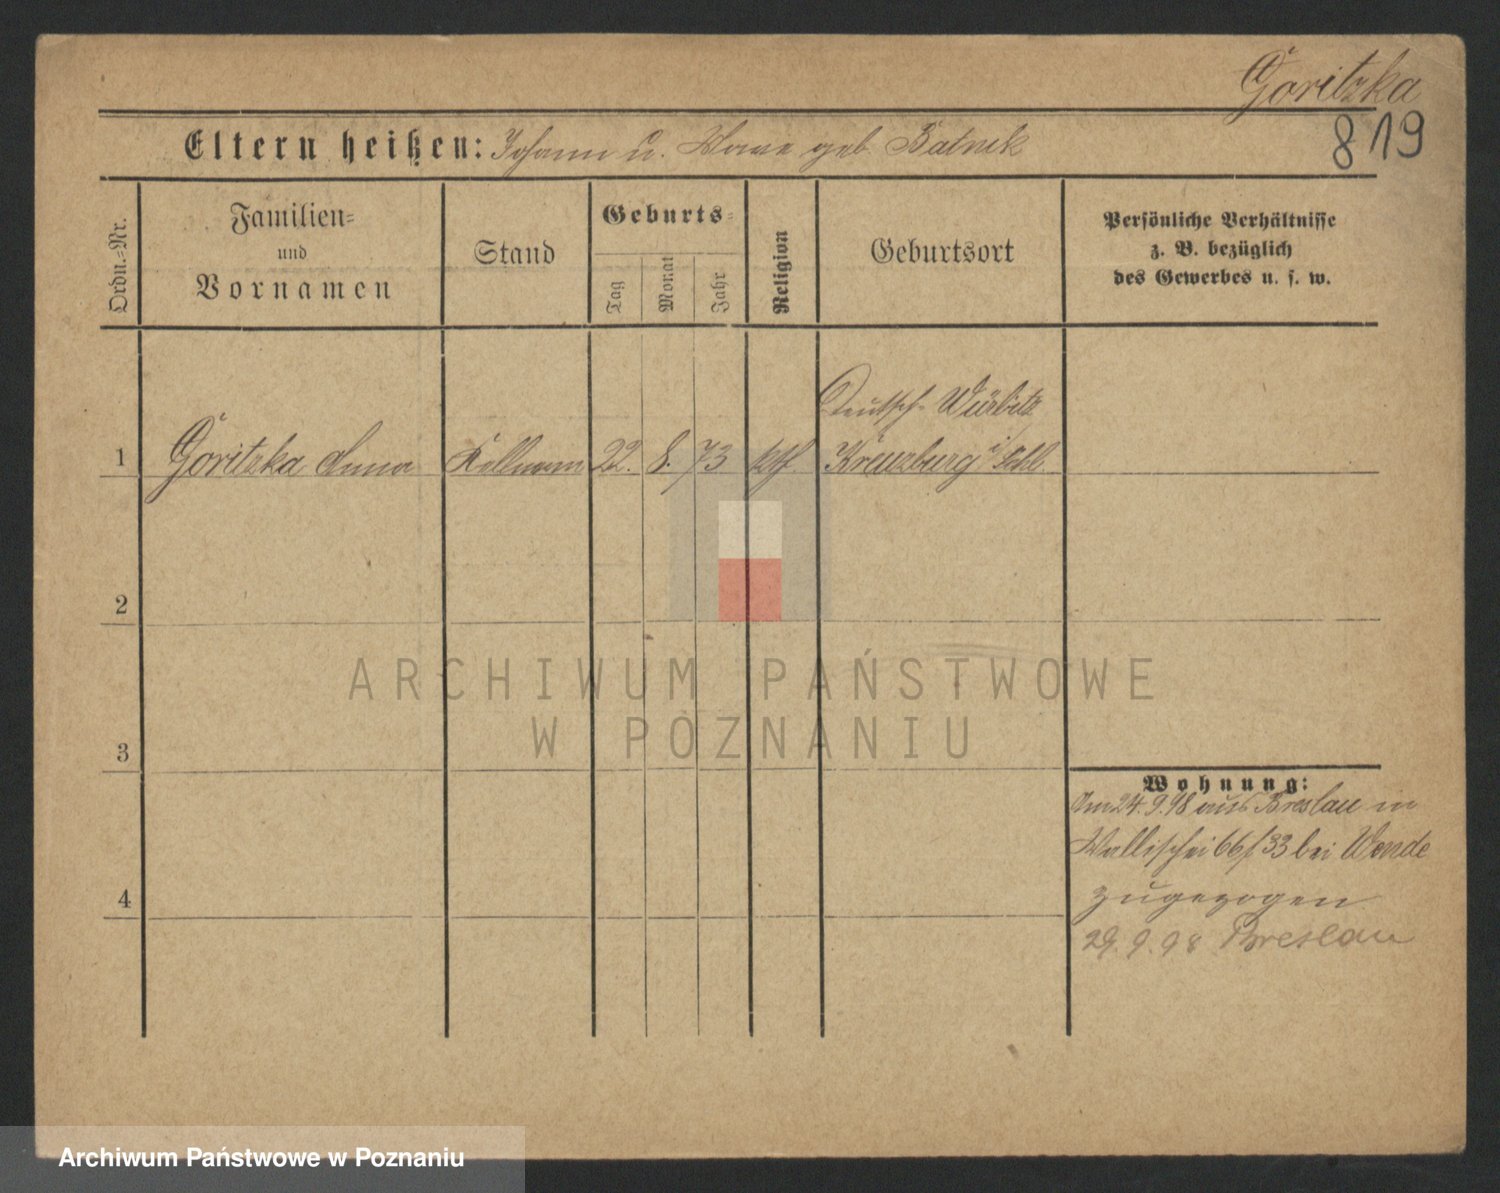 Goritzka
819
Eltern heißen: Johann u. geb. Batnek
Ordn.=Nr.
Familien=
und
Vornamen
Stand
Geburts=
Tag
Monat
Jahr
Religion
Geburtsort
Persönliche Verhältnisse
z. B. bezüglich
des Gewerbes u. s. w.
Deutsch-Würbitz
1 Goritzka Anna Kellnerin 22. 8. 73 kth Kreuzburg i/Schl.
2
ARCHIWUM PAŃSTWOWE
W POZNANIU
3
Wohnung:
Am 24.9.98 aus Breslau in
Wallischei 66/33 bei Wende
4
zugezogen
29.9.98 Breslau
Archiwum Państwowe w Poznaniu